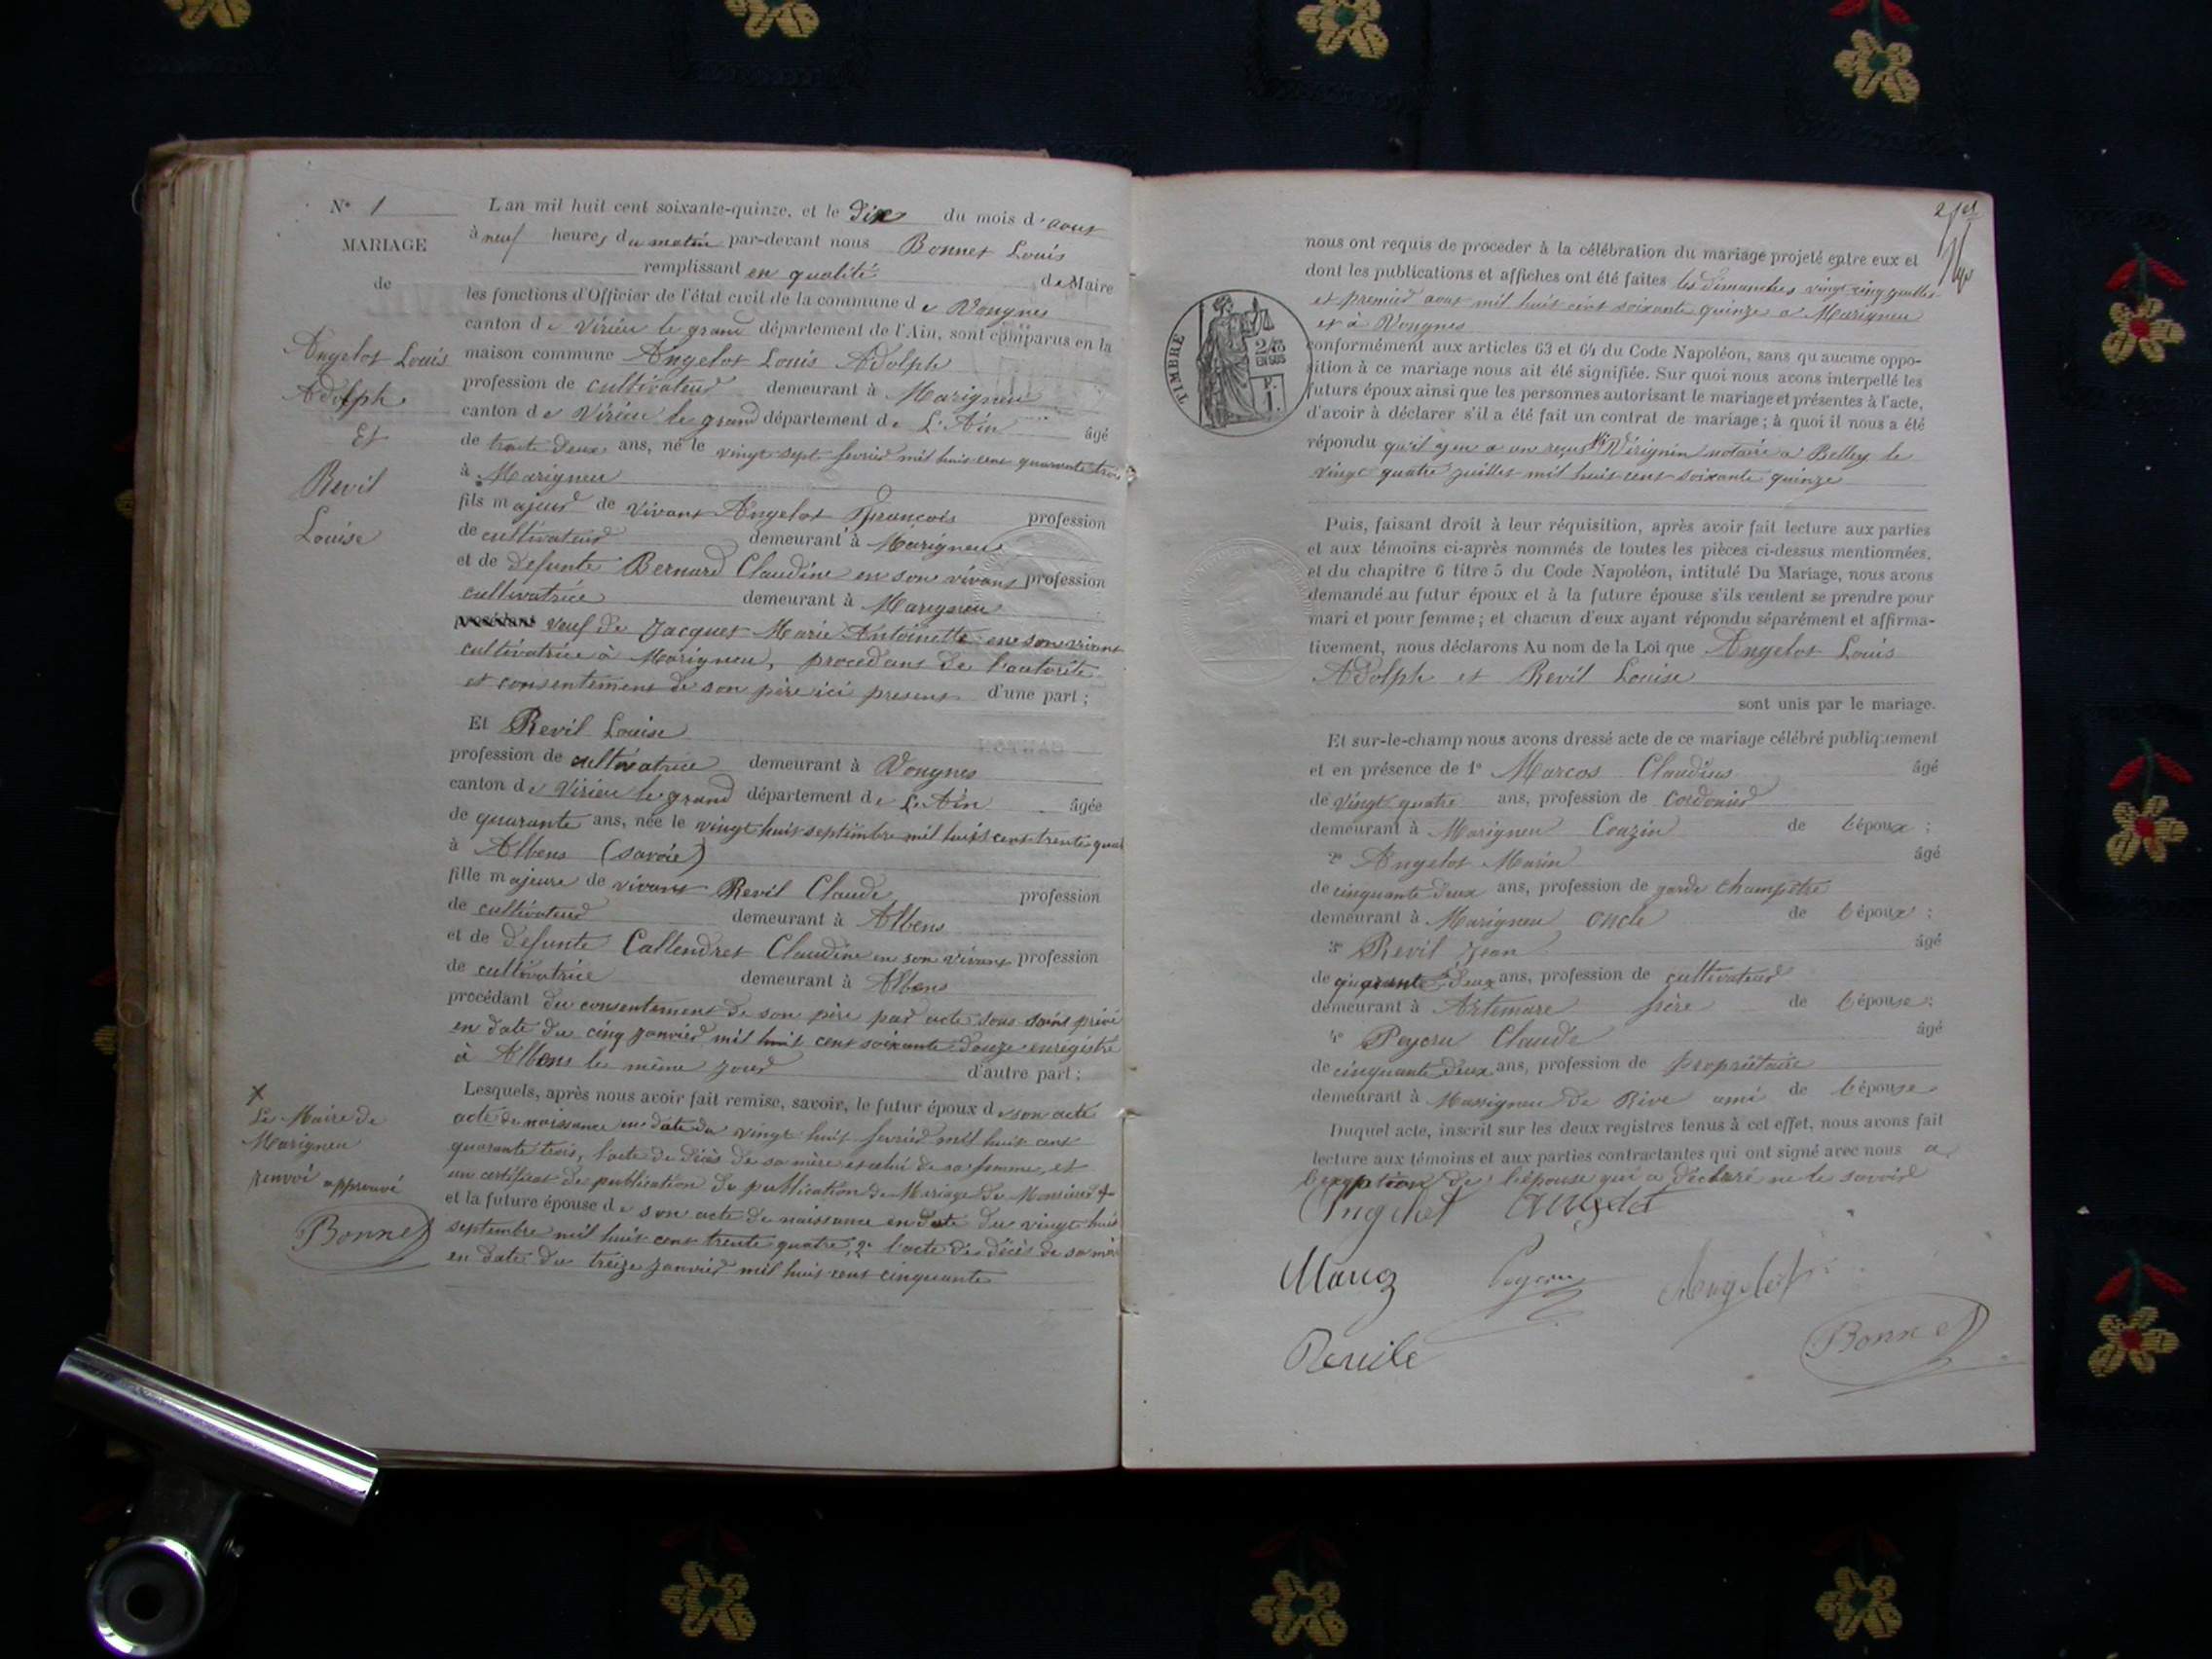 N° 1
MARIAGE
de
Angelot Louis
Adolph
Et
Revil
Louise
L'an mil huit cent soixante-quinze, et le dix du mois d'aout
à neuf heures du matin par-devant nous Bonnet Louis
remplissant en qualité de Maire
les fonctions d'Officier de l'état civil de la commune de Vongnes
canton de Virieu le grand département de l'Ain, sont comparus en la
maison commune Angelot Louis Adolph
profession de cultivateur demeurant à Marigneu
canton de Virieu le grand département de L'Ain âgé
de trente deux ans, né le vingt sept fevrier mil huit cent quarante trois
à Marigneu
fils majeur de vivant Angelot François profession
de cultivateur demeurant à Marigneu
et de defunte Bernard Claudine en son vivant profession
cultivatrice demeurant à Marigneu
procédant veuf de Jacquet Marie Antoinette en son vivant
cultivatrice à Marigneu, procedant de l'autorité
et consentement de son père ici present d'une part ;
Et Revil Louise
profession de cultivatrice demeurant à Vongnes
canton de Virieu le grand département de L'Ain âgée
de quarante ans, née le vingt huit septembre mil huit cent trente quat
à Albens (savoie)
fille majeure de vivant Revil Claude profession
de cultivateur demeurant à Albens
et de defunte Callendret Claudine en son vivant profession
de cultivatrice demeurant à Albens
procédant du consentement de son père par acte sous seins privé
en date du cinq janvier mil huit cent soixante douze enregistré
à Albens le même jour d'autre part ;
Lesquels, après nous avoir fait remise, savoir, le futur époux de son acte
acte de naissance en date du vingt huit fevrier mil huit cent
quarante trois, l'acte de décès de sa mère et celui de sa femme, et
un certificat de publication de publication de Mariage de Monsieur +
et la future épouse de son acte de naissance en date du vingt huit
septembre mil huit cent trente quatre, 2° l'acte de décès de sa mère
en date du treize janvier mil huit cent cinquante
+
Le Maire de
Marigneu
renvoi approuvé
Bonnet
nous ont requis de procéder à la célébration du mariage projeté entre eux et
dont les publications et affiches ont été faites les dimanches vingt cinq juillet
et premier aout mil huit cent soixante quinze a Marigneu
et à Vongnes
conformément aux articles 63 et 64 du Code Napoléon, sans qu'aucune oppo-
sition à ce mariage nous ait été signifiée. Sur quoi nous avons interpellé les
futurs époux ainsi que les personnes autorisant le mariage et présentes à l'acte,
d'avoir à déclarer s'il a été fait un contrat de mariage ; à quoi il nous a été
répondu qu'il y en a un reçu Me Virignin notaire a Belley le
vingt quatre juillet mil huit cent soixante quinze
TIMBRE
Puis, faisant droit à leur réquisition, après avoir fait lecture aux parties
et aux témoins ci-après nommés de toutes les pièces ci-dessus mentionnées,
et du chapitre 6 titre 5 du Code Napoléon, intitulé Du Mariage, nous avons
demandé au futur époux et à la future épouse s'ils veulent se prendre pour
mari et pour femme ; et chacun d'eux ayant répondu séparément et affirma-
tivement, nous déclarons Au nom de la Loi que Angelot Louis
Adolph et Revil Louise
sont unis par le mariage.
Et sur-le-champ nous avons dressé acte de ce mariage célébré publiquement
et en présence de 1° Marcos Claudius âgé
de vingt quatre ans, profession de cordonier
demeurant à Marigneu Couzin de l'époux ;
2° Angelot Marin âgé
de cinquante deux ans, profession de garde champêtre
demeurant à Marigneu oncle de l'époux ;
3° Revil Jean âgé
de quarante deux ans, profession de cultivateur
demeurant à Artemare frère de l'épouse ;
4° Peycru Claude âgé
de cinquante deux ans, profession de propriétaire
demeurant à Massigneu de Rive ami de l'épouse
Duquel acte, inscrit sur les deux registres tenus à cet effet, nous avons fait
lecture aux témoins et aux parties contractantes qui ont signé avec nous a
l'exception de l'épouse qui a déclaré ne le savoir
Angelot Angelot
Peycru Angelot
Bonnet